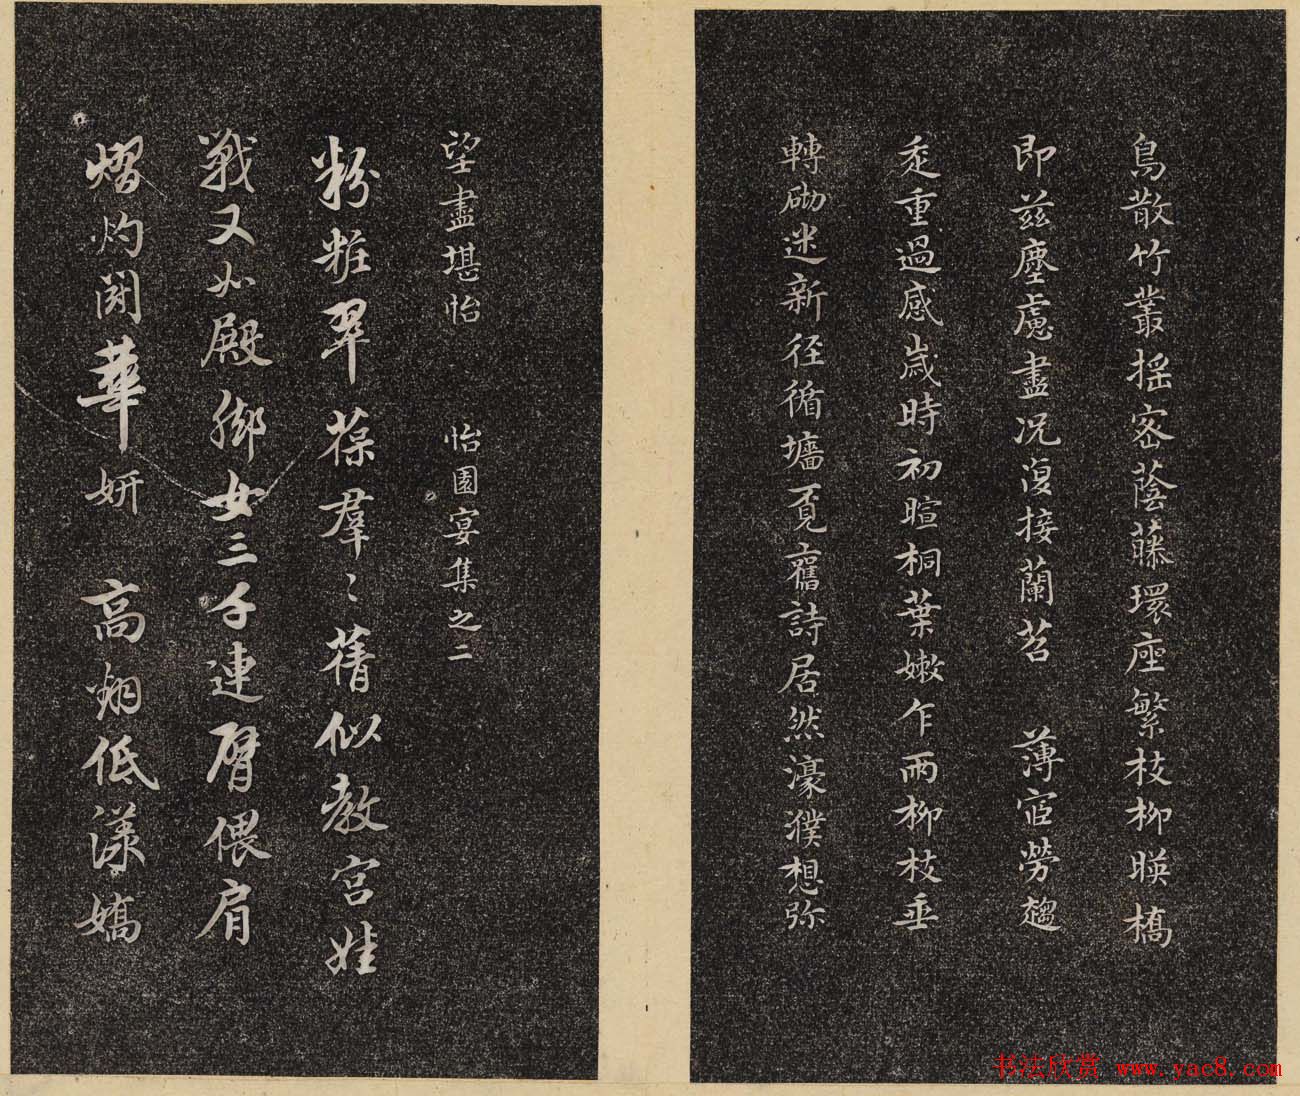 鳥散竹叢搖密蔭藤環座繁枝柳暎橋
即茲塵慮盡况復接蘭苕　薄宦勞趨
走重過感歲時初暄桐葉嫩乍雨柳枝垂
轉砌迷新徑循墻覓舊詩居然濠濮想弥
望盡堪怡　怡園宴集之二
粉粧翠葆羣〻蒨似教宮娃
戰又如殿脚女三千連臂偎肩
熠灼閗華妍　高翔低漾嬌
书法欣赏 www.yac8.com